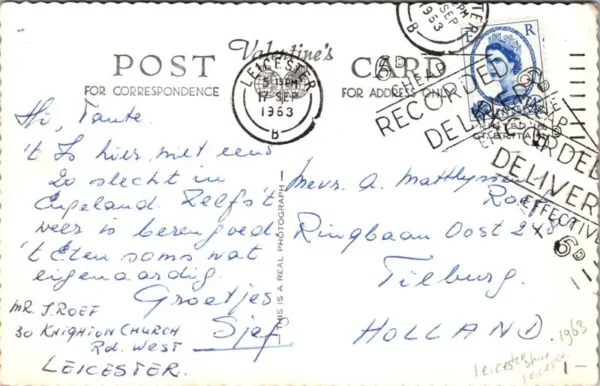 POST Valentine's CARD
FOR CORRESPONDENCE
FOR ADDRESS ONLY
LEICESTER
PM
17 SEP
1963
B
PM
SEP
1963
E R
RECORDED
DELIVERY
RECORDED
DELIVERY
EFFECTIVE
6D
6D
Hi, Tante.
't Is hier niet eens
zo slecht in
Engeland. Zelfs 't
weer is berengoed
't Eten soms wat
eigenaardig.
Groetjes
Sjef
MR J. ROEF
30 KNIGHTON CHURCH
Rd. WEST
LEICESTER.
THIS IS A REAL PHOTOGRAPH
Mevr. A. Matthysen
Roef
Ringbaan Oost 248
Tilburg.
HOLLAND.
1963
1-